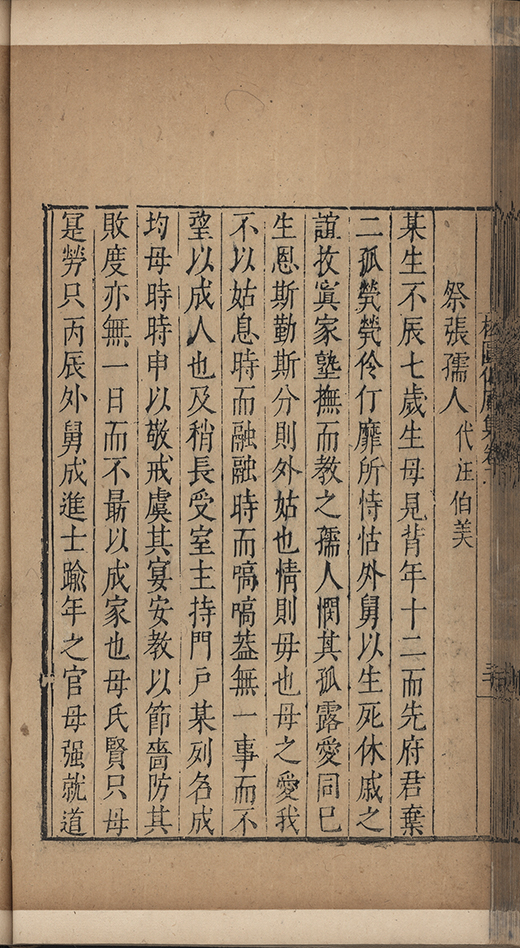 祭張孺人代汪伯美
某生不辰七歲生母見背年十二而先府君棄
二孤煢煢伶仃靡所恃怙外舅以生死休戚之
誼收寘家塾撫而教之孺人憫其孤露愛同已
生恩斯勤斯分則外姑也情則毋也母之愛我
不以姑息時而融融時而嗃嗃葢無一事而不
望以成人也及稍長受室主持門戸某列名成
均母時時申以敬戒虞其宴安教以節嗇防其
敗度亦無一日而不勗以成家也母氏賢只母
寔勞只丙辰外舅成進士踰年之官母强就道